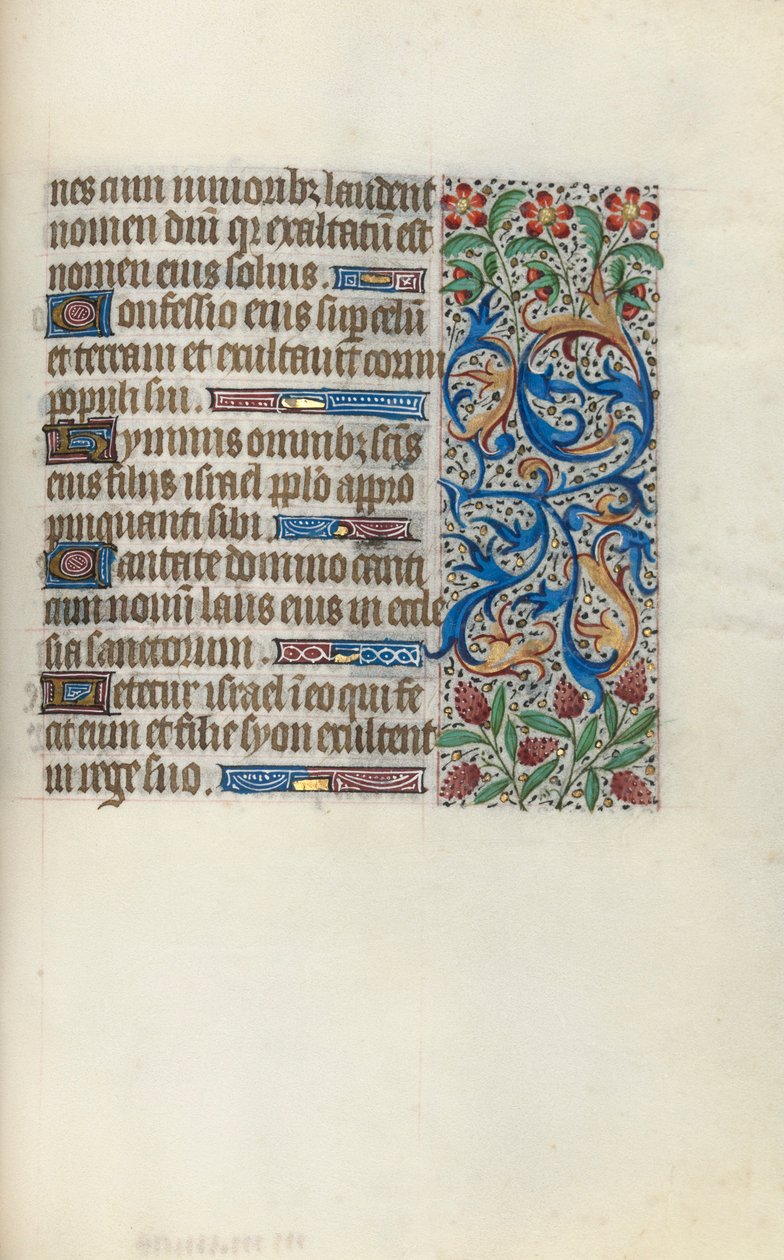 nes cum iunioribꝫ laudent
nomen dn̄i qꝛ exaltatū est
nomen eius solius.
Confessio eius suꝑ celū
et terram et exultauit cornu
populi sui.
Hymnus omnibꝫ scīs
eius filijs israel pplō appro
pinquanti sibi
Cantate domino canti
cum nouū laus eius in eccle
sia sanctorum.
Letetur israel ī eo qui fe
cit eum et filie syon exultent
in rege suo.